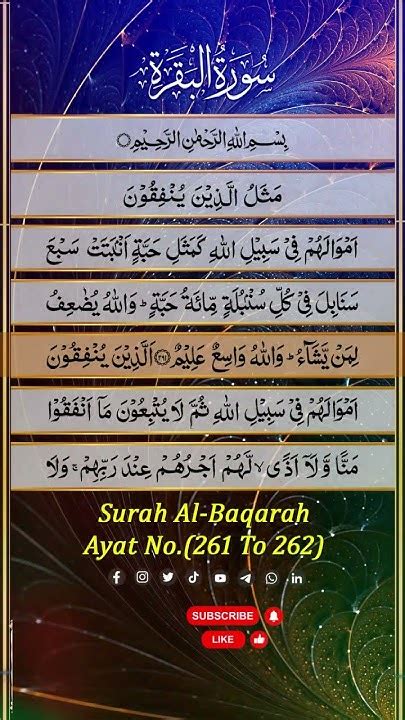 سُورَةُ الْبَقَرَةِ
بِسْمِ اللّٰهِ الرَّحْمٰنِ الرَّحِيْمِ ۝
مَثَلُ الَّذِيْنَ يُنْفِقُوْنَ
اَمْوَالَهُمْ فِيْ سَبِيْلِ اللّٰهِ كَمَثَلِ حَبَّةٍ اَنْۢبَتَتْ سَبْعَ
سَنَابِلَ فِيْ كُلِّ سُنْۢبُلَةٍ مِّائَةُ حَبَّةٍ ؕ وَاللّٰهُ يُضٰعِفُ
لِمَنْ يَّشَآءُ ؕ وَاللّٰهُ وَاسِعٌ عَلِيْمٌ ﴿۲۶۱﴾ اَلَّذِيْنَ يُنْفِقُوْنَ
اَمْوَالَهُمْ فِيْ سَبِيْلِ اللّٰهِ ثُمَّ لَا يُتْبِعُوْنَ مَاۤ اَنْفَقُوْا
مَنًّا وَّلَاۤ اَذًى ۙ لَّهُمْ اَجْرُهُمْ عِنْدَ رَبِّهِمْ ۚ وَلَا
Surah Al-Baqarah
Ayat No.(261 To 262)
SUBSCRIBE
LIKE